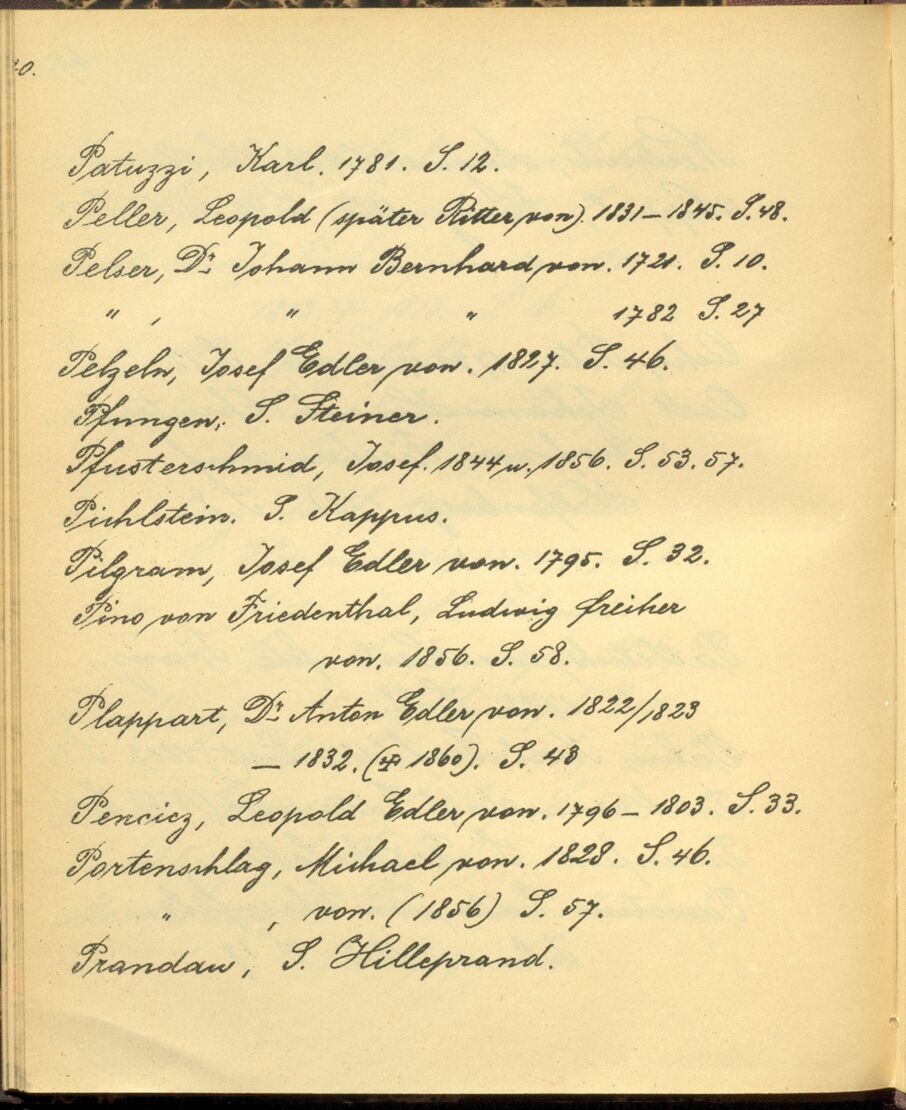 0.
Patuzzi, Karl. 1781. S. 12.
Peller, Leopold (später Ritter von). 1831 – 1845. S. 48.
Pelser, Dr. Johann Bernhard von. 1721. S. 10.
" , " " 1782 S. 27
Pelzeln, Josef Edler von. 1827. S. 46.
Pfungen, S. Steiner.
Pfusterschmid, Josef. 1844 u. 1856. S. 53. 57.
Pichlstein. S. Kappus.
Pilgram, Josef Edler von. 1795. S. 32.
Pino von Friedenthal, Ludwig freiher
von. 1856. S. 58.
Plappart, Dr. Anton Edler von. 1822/1823
– 1832. (✠ 1860). S. 43
Pencicz, Leopold Edler von. 1796 – 1803. S. 33.
Portenschlag, Michael von. 1828. S. 46.
" , von. (1856) S. 57.
Prandau, S. Hilleprand.